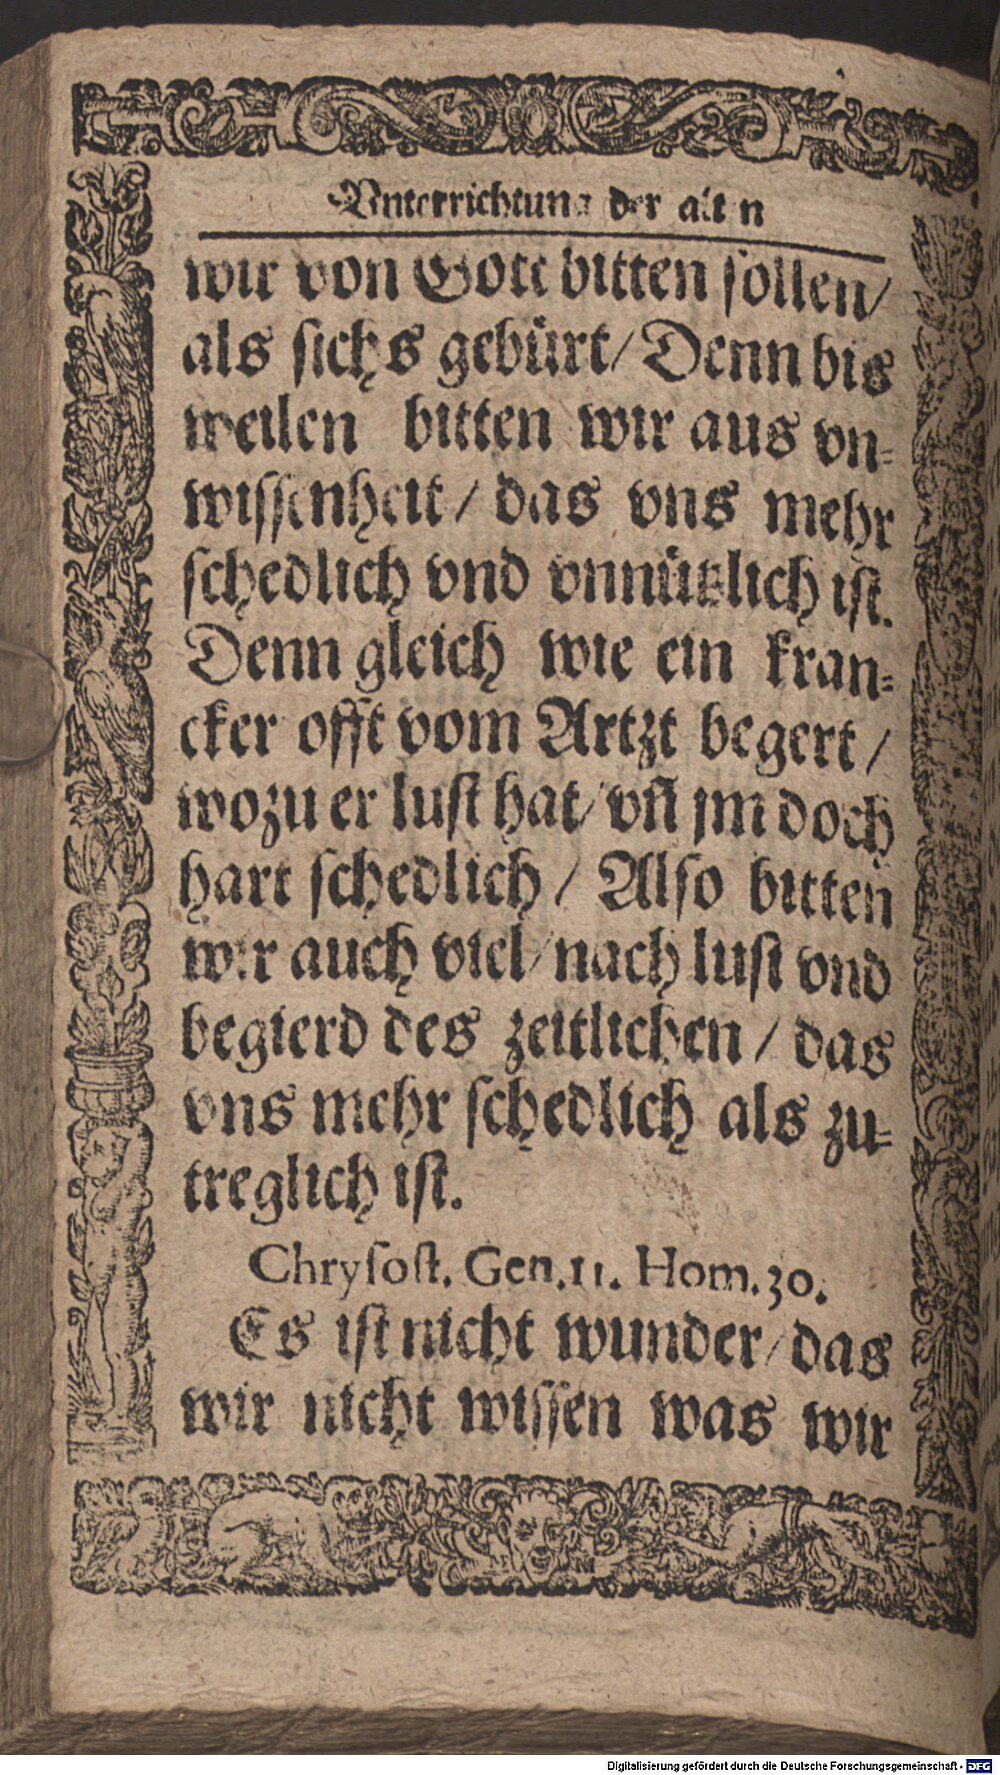 Vnterrichtung der alten
wir von Gott bitten sollen/
als sichs gebürt/ Denn bis
weilen bitten wir aus vn-
wissenheit/ das vns mehr
schedlich vnd vnnützlich ist.
Denn gleich wie ein kran-
cker offt vom Artzt begert/
wozu er lust hat/ vñ jm doch
hart schedlich/ Also bitten
wir auch viel/ nach lust vnd
begierd des zeitlichen/ das
vns mehr schedlich als zu-
treglich ist.
Chrysost. Gen.11. Hom.30.
Es ist nicht wunder/ das
wir nicht wissen was wir
Digitalisierung gefördert durch die Deutsche Forschungsgemeinschaft - DFG